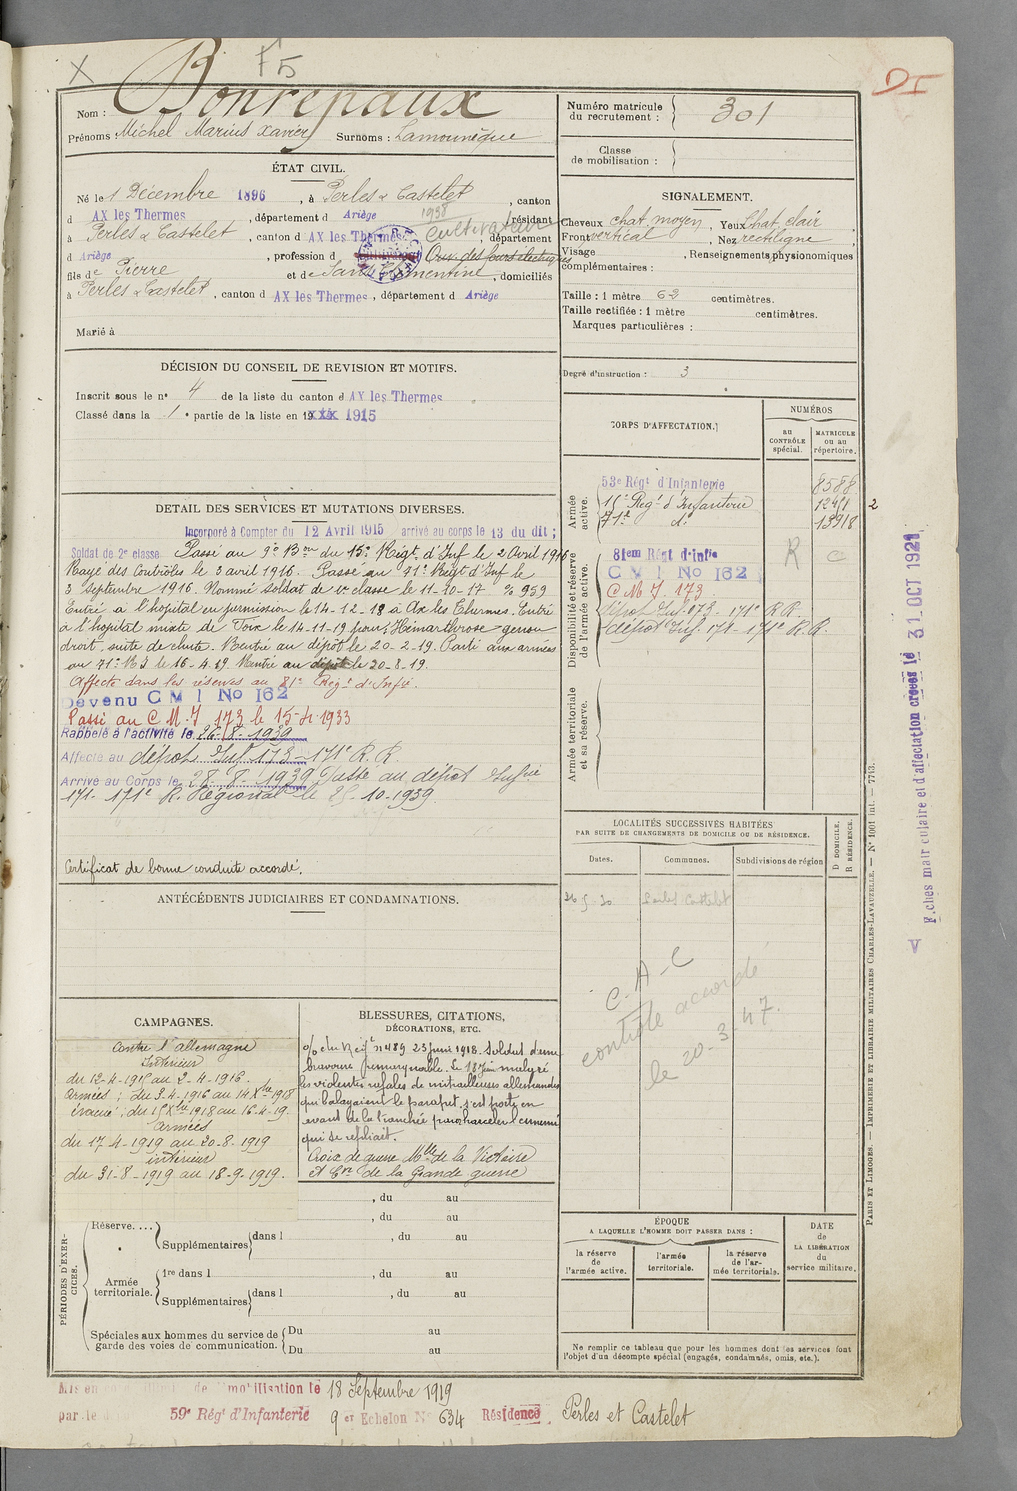 X F5
DI
Nom : Bonrepaux
Prénoms : Michel Marius Xavier Surnoms : Lamounègue
ÉTAT CIVIL.
Né le 1 Décembre 1896, à Perles & Castelet, canton
d AX les Thermes, département d Ariège, résidant
1938
à Perles & Castelet, canton d AX les Thermes, département
Cultivateur
d Ariège, profession d Ouv. des fours électriques
fils de Pierre et de Sans Clementine, domiciliés
à Perles & Castelet, canton d AX les Thermes, département d Ariège
Marié à
DÉCISION DU CONSEIL DE REVISION ET MOTIFS.
Inscrit sous le n° 4 de la liste du canton d AX les Thermes
Classé dans la 1e partie de la liste en 19 1915
DETAIL DES SERVICES ET MUTATIONS DIVERSES.
Incorporé à Compter du 12 Avril 1915 arrivé au corps le 13 du dit ;
Soldat de 2e classe Passé au 9e Bon du 15e Regt d'Inf le 2 Avril 1916
Rayé des Contrôles le 3 avril 1916. Passé au 71e Regt d'Inf le
3 Septembre 1916. Nommé soldat de 1re classe le 11-10-17 % 959
Entré à l'hôpital en permission le 14-12-18 à Ax les Thermes. Entré
à l'hôpital mixte de Foix le 14-11-19 pour Hémarthrose genou
droit, suite de chute. Rentré au dépôt le 20-2-19. Parti aux armées
au 71e RI le 16-4-19. Rentré au dépôt le 20-8-19.
Affecté dans les réserves au 81e Regt d'Infie.
Devenu C M I No 162
Passé au C M. 7 173 le 15-4-1933
Rappelé à l'activité le 26-8-1939
Affecté au dépôt Inf 173 - 171e R.R.
Arrivé au Corps le 28-8-1939 Passé au dépôt Infie
171- 171e R. Régional le 25-10-1939
Certificat de bonne conduite accordé.
ANTÉCÉDENTS JUDICIAIRES ET CONDAMNATIONS.
CAMPAGNES.
Contre l'allemagne
Intérieur
du 12-4-1915 au 2-4-1916.
Armées : du 3-4-1916 au 14 Xbre 1918
évacué : du 15 Xbre 1918 au 16-4-19.
Armées
du 17-4-1919 au 20-8-1919
intérieur
du 31-8-1919 au 18-9-1919.
BLESSURES, CITATIONS,
DÉCORATIONS, ETC.
o/o du Regt n 489 23 juin 1918. Soldat d'une
bravoure remarquable. Le 18 juin malgré
les violentes rafales de mitrailleuses allemandes
qui balayaient le parapet, s'est porté en
avant de la tranchée pour harceler l'ennemi
qui se repliait.
Croix de guerre Mlle de la Victoire
et Cve de la Grande guerre
, du au
, du au
PÉRIODES D'EXERCICES.
Réserve. ...
Supplémentaires dans l , du au
Armée territoriale.
1re dans l , du au
Supplémentaires dans l , du au
Spéciales aux hommes du service de garde des voies de communication.
Du au
Du au
Numéro matricule du recrutement : 301
Classe de mobilisation :
SIGNALEMENT.
Cheveux chat. moyen, Yeux Chat. clair
Front vertical, Nez rectiligne
Visage , Renseignements physionomiques
complémentaires :
Taille : 1 mètre 62 centimètres.
Taille rectifiée : 1 mètre centimètres.
Marques particulières :
Degré d'instruction : 3
CORPS D'AFFECTATION.
NUMÉROS
au CONTRÔLE spécial.
MATRICULE ou au répertoire.
Armée active.
53e Régt d'Infanterie 8588
15e Regt d'Infanterie 12471
71e d° 13918
2
Disponibilité et réserve de l'armée active.
81em Régt d'Infie R
C M I No 162
C M 7. 173.
dépôt Inf. 173. 171e R.R.
dépôt Inf. 171 - 171e R.R.
Armée territoriale et sa réserve.
LOCALITÉS SUCCESSIVES HABITÉES
PAR SUITE DE CHANGEMENTS DE DOMICILE OU DE RÉSIDENCE.
Dates. Communes. Subdivisions de région
D DOMICILE.
R RÉSIDENCE.
26 5 20 Perles Castelet
C-A-C
contrôle accordé
le 20-3-47.
ÉPOQUE
A LAQUELLE L'HOMME DOIT PASSER DANS :
la réserve de l'armée active.
l'armée territoriale.
la réserve de l'armée territoriale.
DATE de LA LIBÉRATION du service militaire.
Ne remplir ce tableau que pour les hommes dont les services font
l'objet d'un décompte spécial (engagés, condamnés, omis, etc.).
PARIS ET LIMOGES. — IMPRIMERIE ET LIBRAIRIE MILITAIRES CHARLES-LAVAUZELLE. — N° 1001 int. — 7713.
V Fiches matriculaire et d'affectation créées le 31 OCT 1921
Mis en de mobilisation le 18 Septembre 1919
par le 59e Régt d'Infanterie 9 er Echelon N° 634 Résidence Perles et Castelet